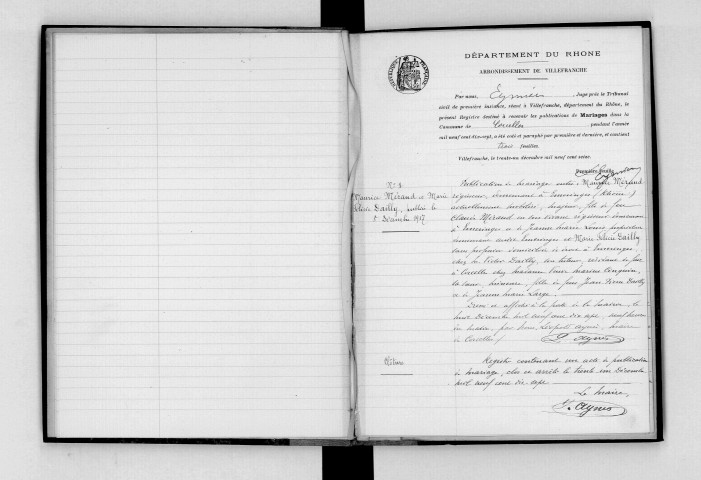 DÉPARTEMENT DU RHONE
ARRONDISSEMENT DE VILLEFRANCHE
Par nous, Eymin Juge près le Tribunal
civil de première instance, séant à Villefranche, département du Rhône, le
présent Registre destiné à recevoir les publications de Mariages dans la
Commune de Corcelles pendant l'année
mil neuf cent dix-sept, a été coté et paraphé par première et dernière, et contient
trois feuilles.
Villefranche, le trente-un décembre mil neuf cent seize.
Première feuille
N° 1
Maurice Méraud et Marie
Félicie Dailly, publiée le
Décembre 1917
Publication de mariage entre Maurice Méraud
régisseur, demeurant à Emeringes (Rhône)
actuellement mobilisé, majeur, fils de feu
Claude Méraud en son vivant régisseur demeurant
à Emeringes et de Jeanne Marie propriétaire
demeurant Emeringes et Marie Félicie Dailly
sans profession domiciliée de droit à Emeringes,
chez Victor Dailly, son tuteur, résidant de fait
à Corcelles chez madame
sa mineure, fille de feu Jean Pierre Dailly
et de Jeanne Marie Large.
Dressé et affiché à la porte de la mairie, le
Décembre mil neuf cent dix sept, neuf heures
du matin, par nous, Léopold maire
de Corcelles.
Clôture
Registre contenant un acte de publication
de mariage, clos et arrêté le trente un Décembre
mil neuf cent dix sept
Le Maire,